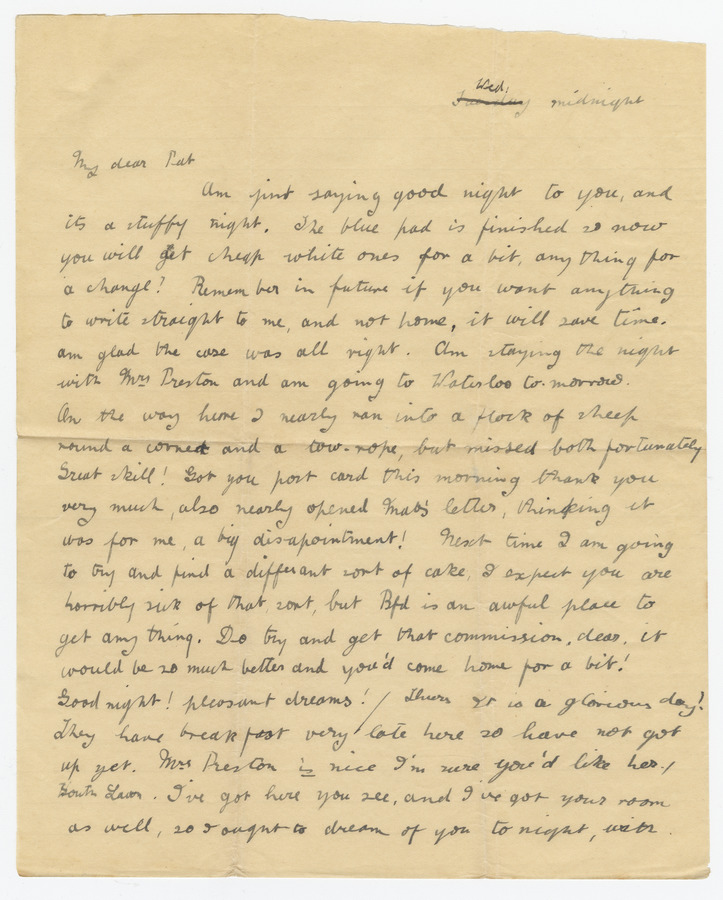 Wed.
~~Tuesday~~ midnight
My dear Pat
Am just saying good night to you, and
its a stuffy night. The blue pad is finished so now
you will get cheap white ones for a bit, any thing for
a change! Remember in future if you want anything
to write straight to me, and not home, it will save time.
am glad the case was all right. Am staying the night
with Mrs Preston and am going to Waterloo to-morrow.
On the way here I nearly ran into a flock of sheep
round a corner and a tow-rope, but missed both fortunately
Great skill! Got you post card this morning thank you
very much, also nearly opened Mab's letter, thinking it
was for me, a big disapointment! Next time I am going
to try and find a differant sort of cake, I expect you are
horribly sick of that, sort, but Bfd is an awful place to
get any thing. Do try and get that commission, dear, it
would be so much better and you'd come home for a bit!
Good night! pleasant dreams! / Thurs It is a glorious day!
They have breakfast very late here so have not got
up yet. Mrs Preston is nice I'm sure you'd like her. /
South Lawn. I've got here you see, and I've got your room
as well, so I ought to dream of you to night, with.